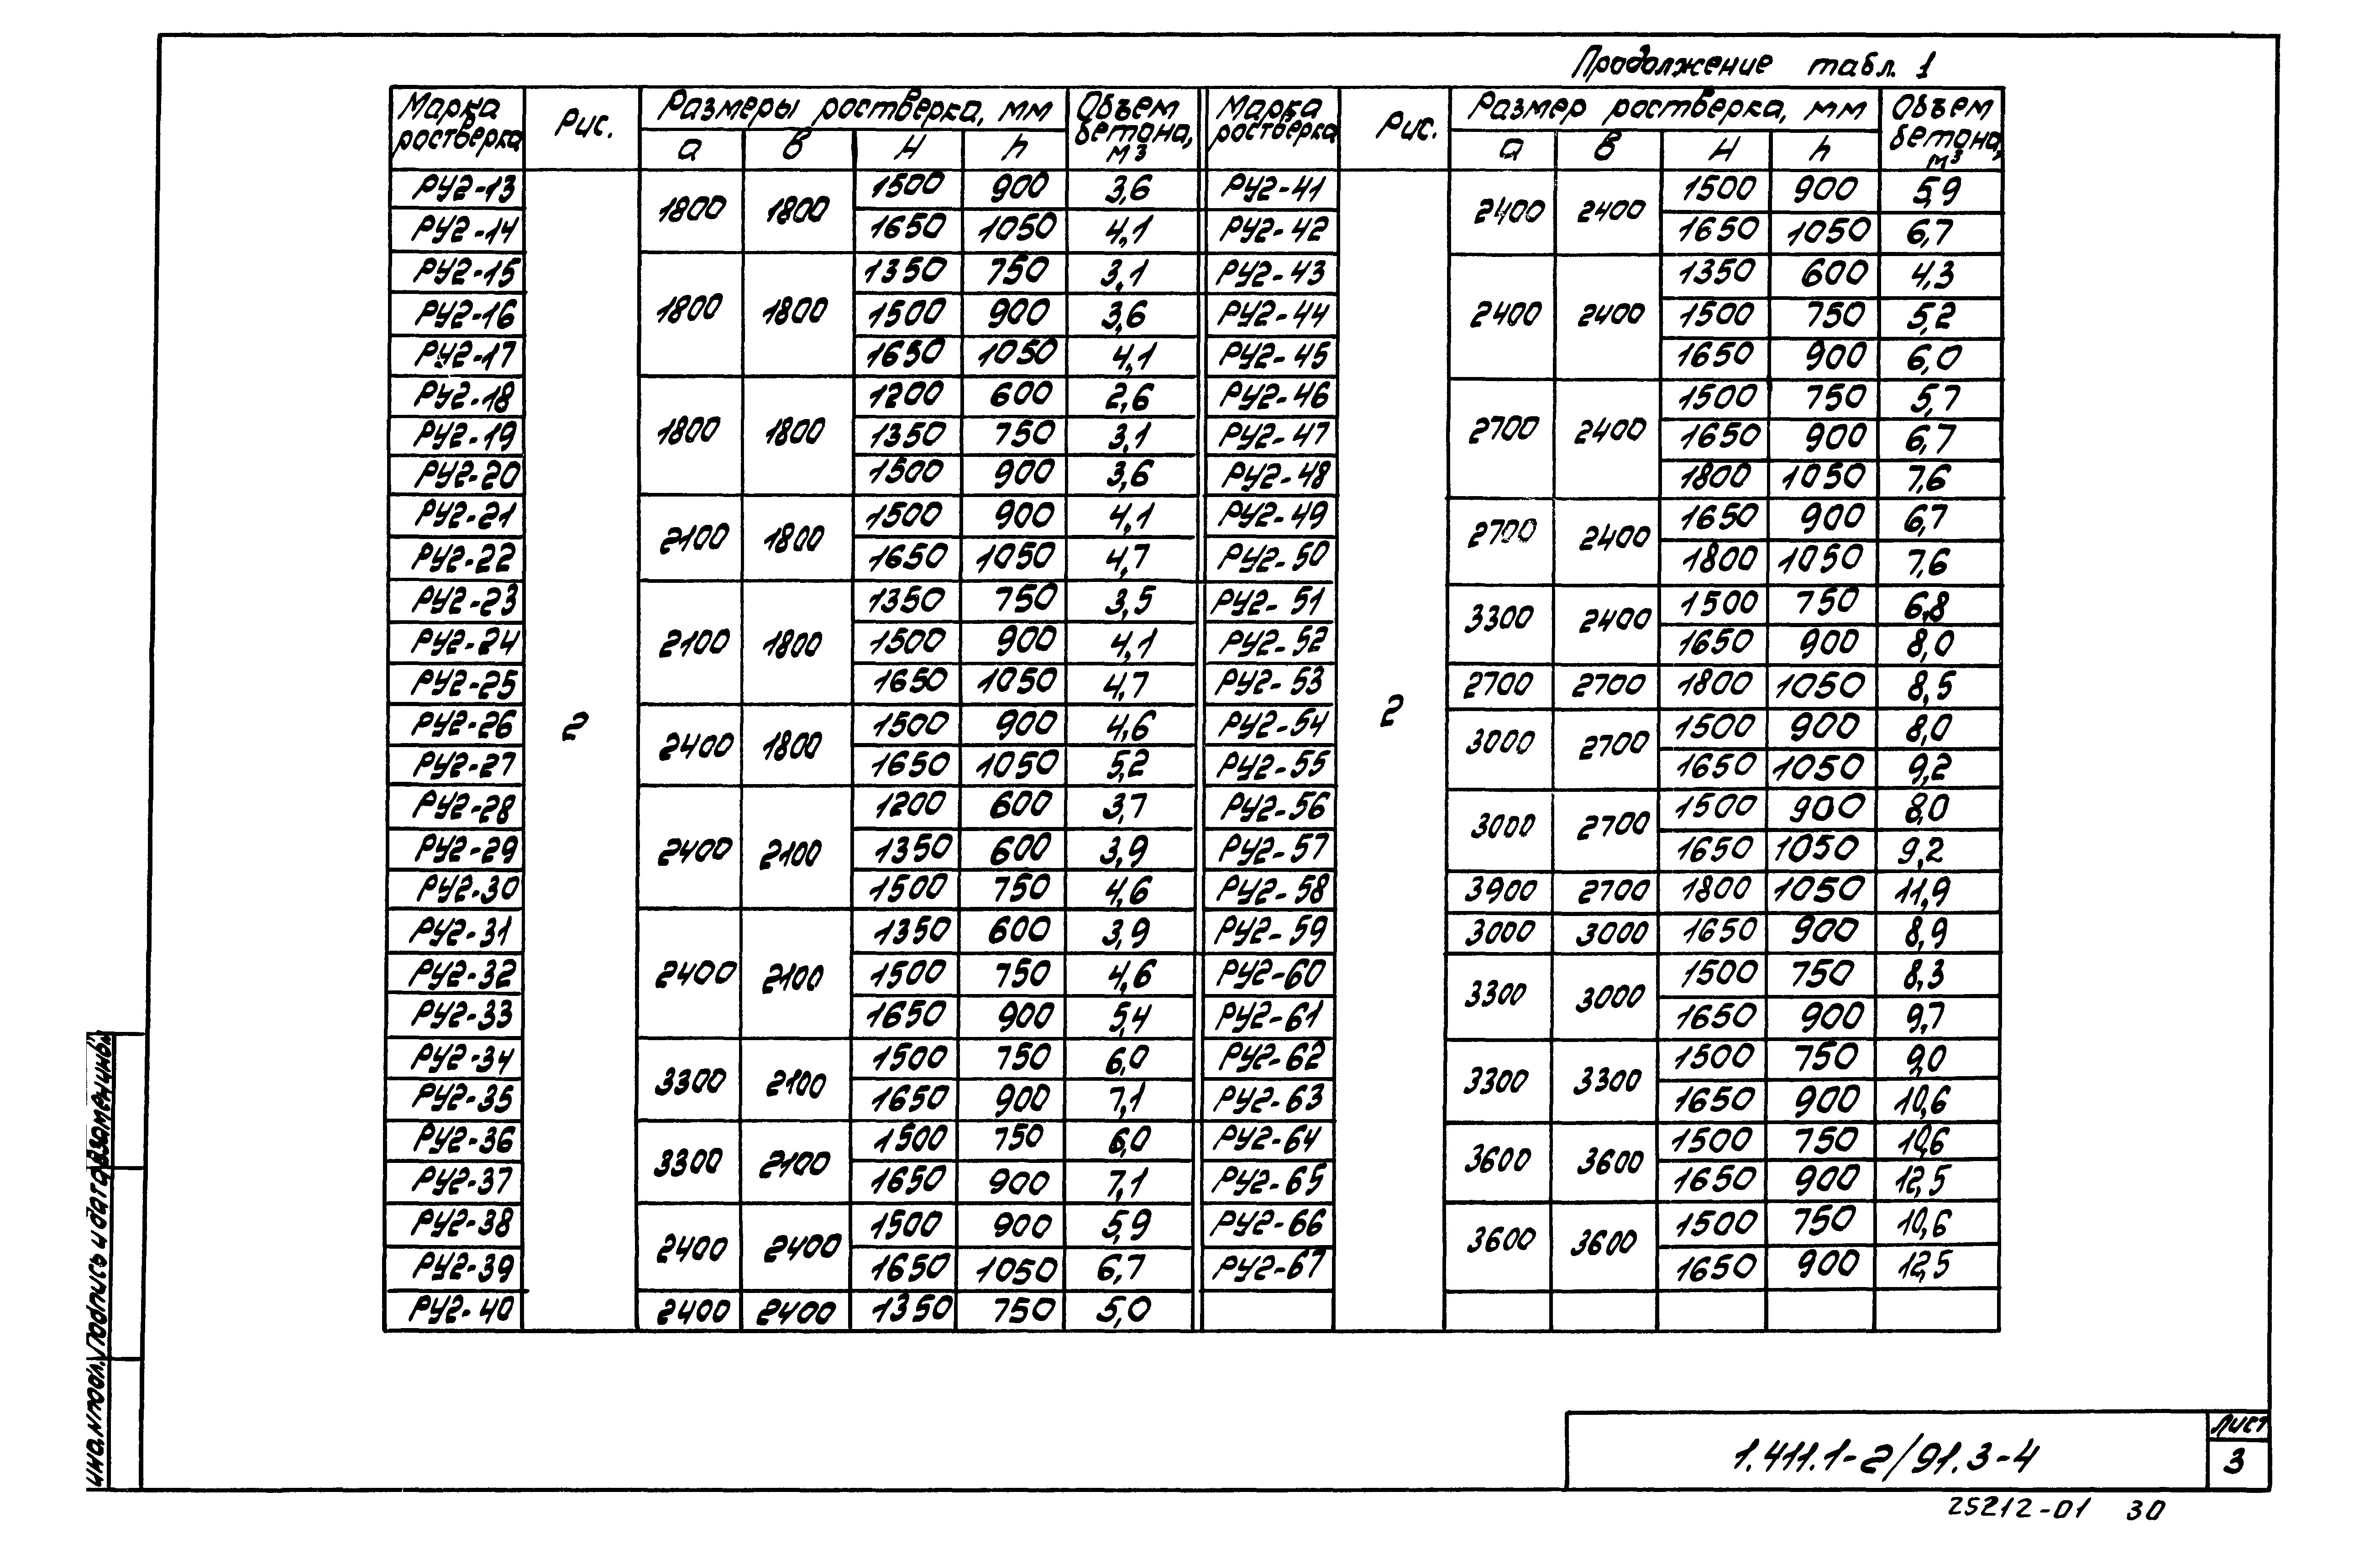 Продолжение табл. 1
Марка ростверка Рис. Размеры ростверка, мм Объем бетона, м³ Марка ростверка Рис. Размер ростверка, мм Объем бетона, м³
а в Н h а в Н h
РУ2-13 2 1800 1800 1500 900 3,6 РУ2-41 2 2400 2400 1500 900 5,9
РУ2-14 1650 1050 4,1 РУ2-42 1650 1050 6,7
РУ2-15 1800 1800 1350 750 3,1 РУ2-43 2400 2400 1350 600 4,3
РУ2-16 1500 900 3,6 РУ2-44 1500 750 5,2
РУ2-17 1650 1050 4,1 РУ2-45 1650 900 6,0
РУ2-18 1800 1800 1200 600 2,6 РУ2-46 2700 2400 1500 750 5,7
РУ2-19 1350 750 3,1 РУ2-47 1650 900 6,7
РУ2-20 1500 900 3,6 РУ2-48 1800 1050 7,6
РУ2-21 2100 1800 1500 900 4,1 РУ2-49 2700 2400 1650 900 6,7
РУ2-22 1650 1050 4,7 РУ2-50 1800 1050 7,6
РУ2-23 2100 1800 1350 750 3,5 РУ2-51 3300 2400 1500 750 6,8
РУ2-24 1500 900 4,1 РУ2-52 1650 900 8,0
РУ2-25 1650 1050 4,7 РУ2-53 2700 2700 1800 1050 8,5
РУ2-26 2400 1800 1500 900 4,6 РУ2-54 3000 2700 1500 900 8,0
РУ2-27 1650 1050 5,2 РУ2-55 1650 1050 9,2
РУ2-28 2400 2100 1200 600 3,7 РУ2-56 3000 2700 1500 900 8,0
РУ2-29 1350 600 3,9 РУ2-57 1650 1050 9,2
РУ2-30 1500 750 4,6 РУ2-58 3900 2700 1800 1050 11,9
РУ2-31 2400 2100 1350 600 3,9 РУ2-59 3000 3000 1650 900 8,9
РУ2-32 1500 750 4,6 РУ2-60 3300 3000 1500 750 8,3
РУ2-33 1650 900 5,4 РУ2-61 1650 900 9,7
РУ2-34 3300 2100 1500 750 6,0 РУ2-62 3300 3300 1500 750 9,0
РУ2-35 1650 900 7,1 РУ2-63 1650 900 10,6
РУ2-36 3300 2100 1500 750 6,0 РУ2-64 3600 3600 1500 750 10,6
РУ2-37 1650 900 7,1 РУ2-65 1650 900 12,5
РУ2-38 2400 2400 1500 900 5,9 РУ2-66 3600 3600 1500 750 10,6
РУ2-39 1650 1050 6,7 РУ2-67 1650 900 12,5
РУ2-40 2400 2400 1350 750 5,0
Инв.N подл. Подпись и дата Взамен инв.N
1.411.1-2/91.3-4
Лист
3
25212-01 30